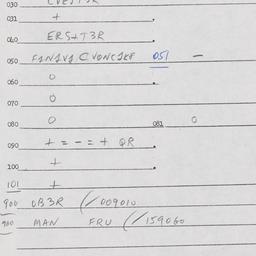 030
031 +
040 ERS+T3R
050 051 —
060 0
070 0
080 0 081 0
090 + = - = + QR
100 +
101 +
900 OB3R (/009010
900 MAN FRU (/159060